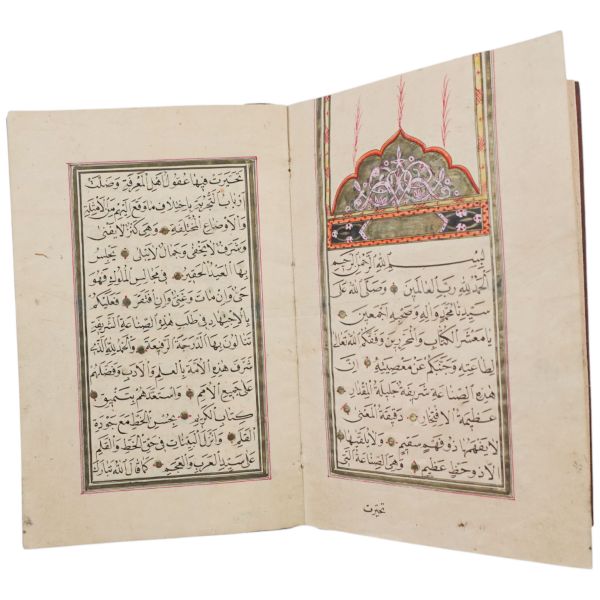 بسم الله الرحمن الرحيم
الحمد لله رب العالمين وصلى الله على
سيدنا محمد وآله وصحبه اجمعين
يا معشر الكتاب والمحررين وفقكم الله تعالى
لطاعته وجنبكم عن معصيته ان
هذه الصناعة شريفة جليلة المقدار
عظيمة الافتخار دقيقة المعنى
لا يفهمها ذو فهم سقيم ولا يلقيها
الا ذو حظ عظيم وهي الصناعة التي
تحيرت
تحيرت فيها عقول اهل المعرفة وضلت
ارباب التجربة باختلاف ما وقع لهم من الامثلة
والاوضاع المختلفة وهي كنز لا يفنى
وشرف لا يخفى وجمال لا يبلى يجلس
بها العبد الحقير في مجالس الملوك فهو
حي وان مات وغني وان افتقر فعليكم
بالاجتهاد في طلب هذه الصناعة الشريفة
تنالون بها الدرجة الرفيعة والحمد لله الذي
شرف هذه الامة بالعلم والادب وفضلهم
على جميع الامم واستعدهم
كتاب الكريم بحسن الخط مع جودة
القلم وانزل البينات في حق الخط والقلم
على سيد العرب والعجم كما قال الله تبارك